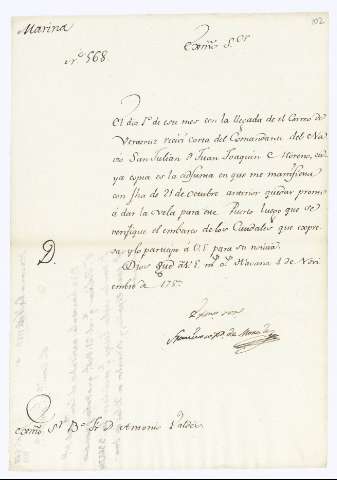 Marina
102
Nº 568.
Exmô Sor
El dia 1º de este mes con la llegada de el Correo de
Veracruz recivi carta del Comandante del Na-
vio San Julian Dn Juan Joaquin Moreno, cu-
ya copia es la adjunta en que me manifiesta
con fha de 21 de octubre anterior quedar promto
á dar la vela para este Puerto luego que se
verifique el embarco de los Caudales que expre-
sa; y lo participo á V.E. para su noticia.
D.
Dios gue á V.E. ms as Havana 4 de Novi-
embre de
Exmo Sor
Exmô Sr Bº Fr Dn Antonio Valdés